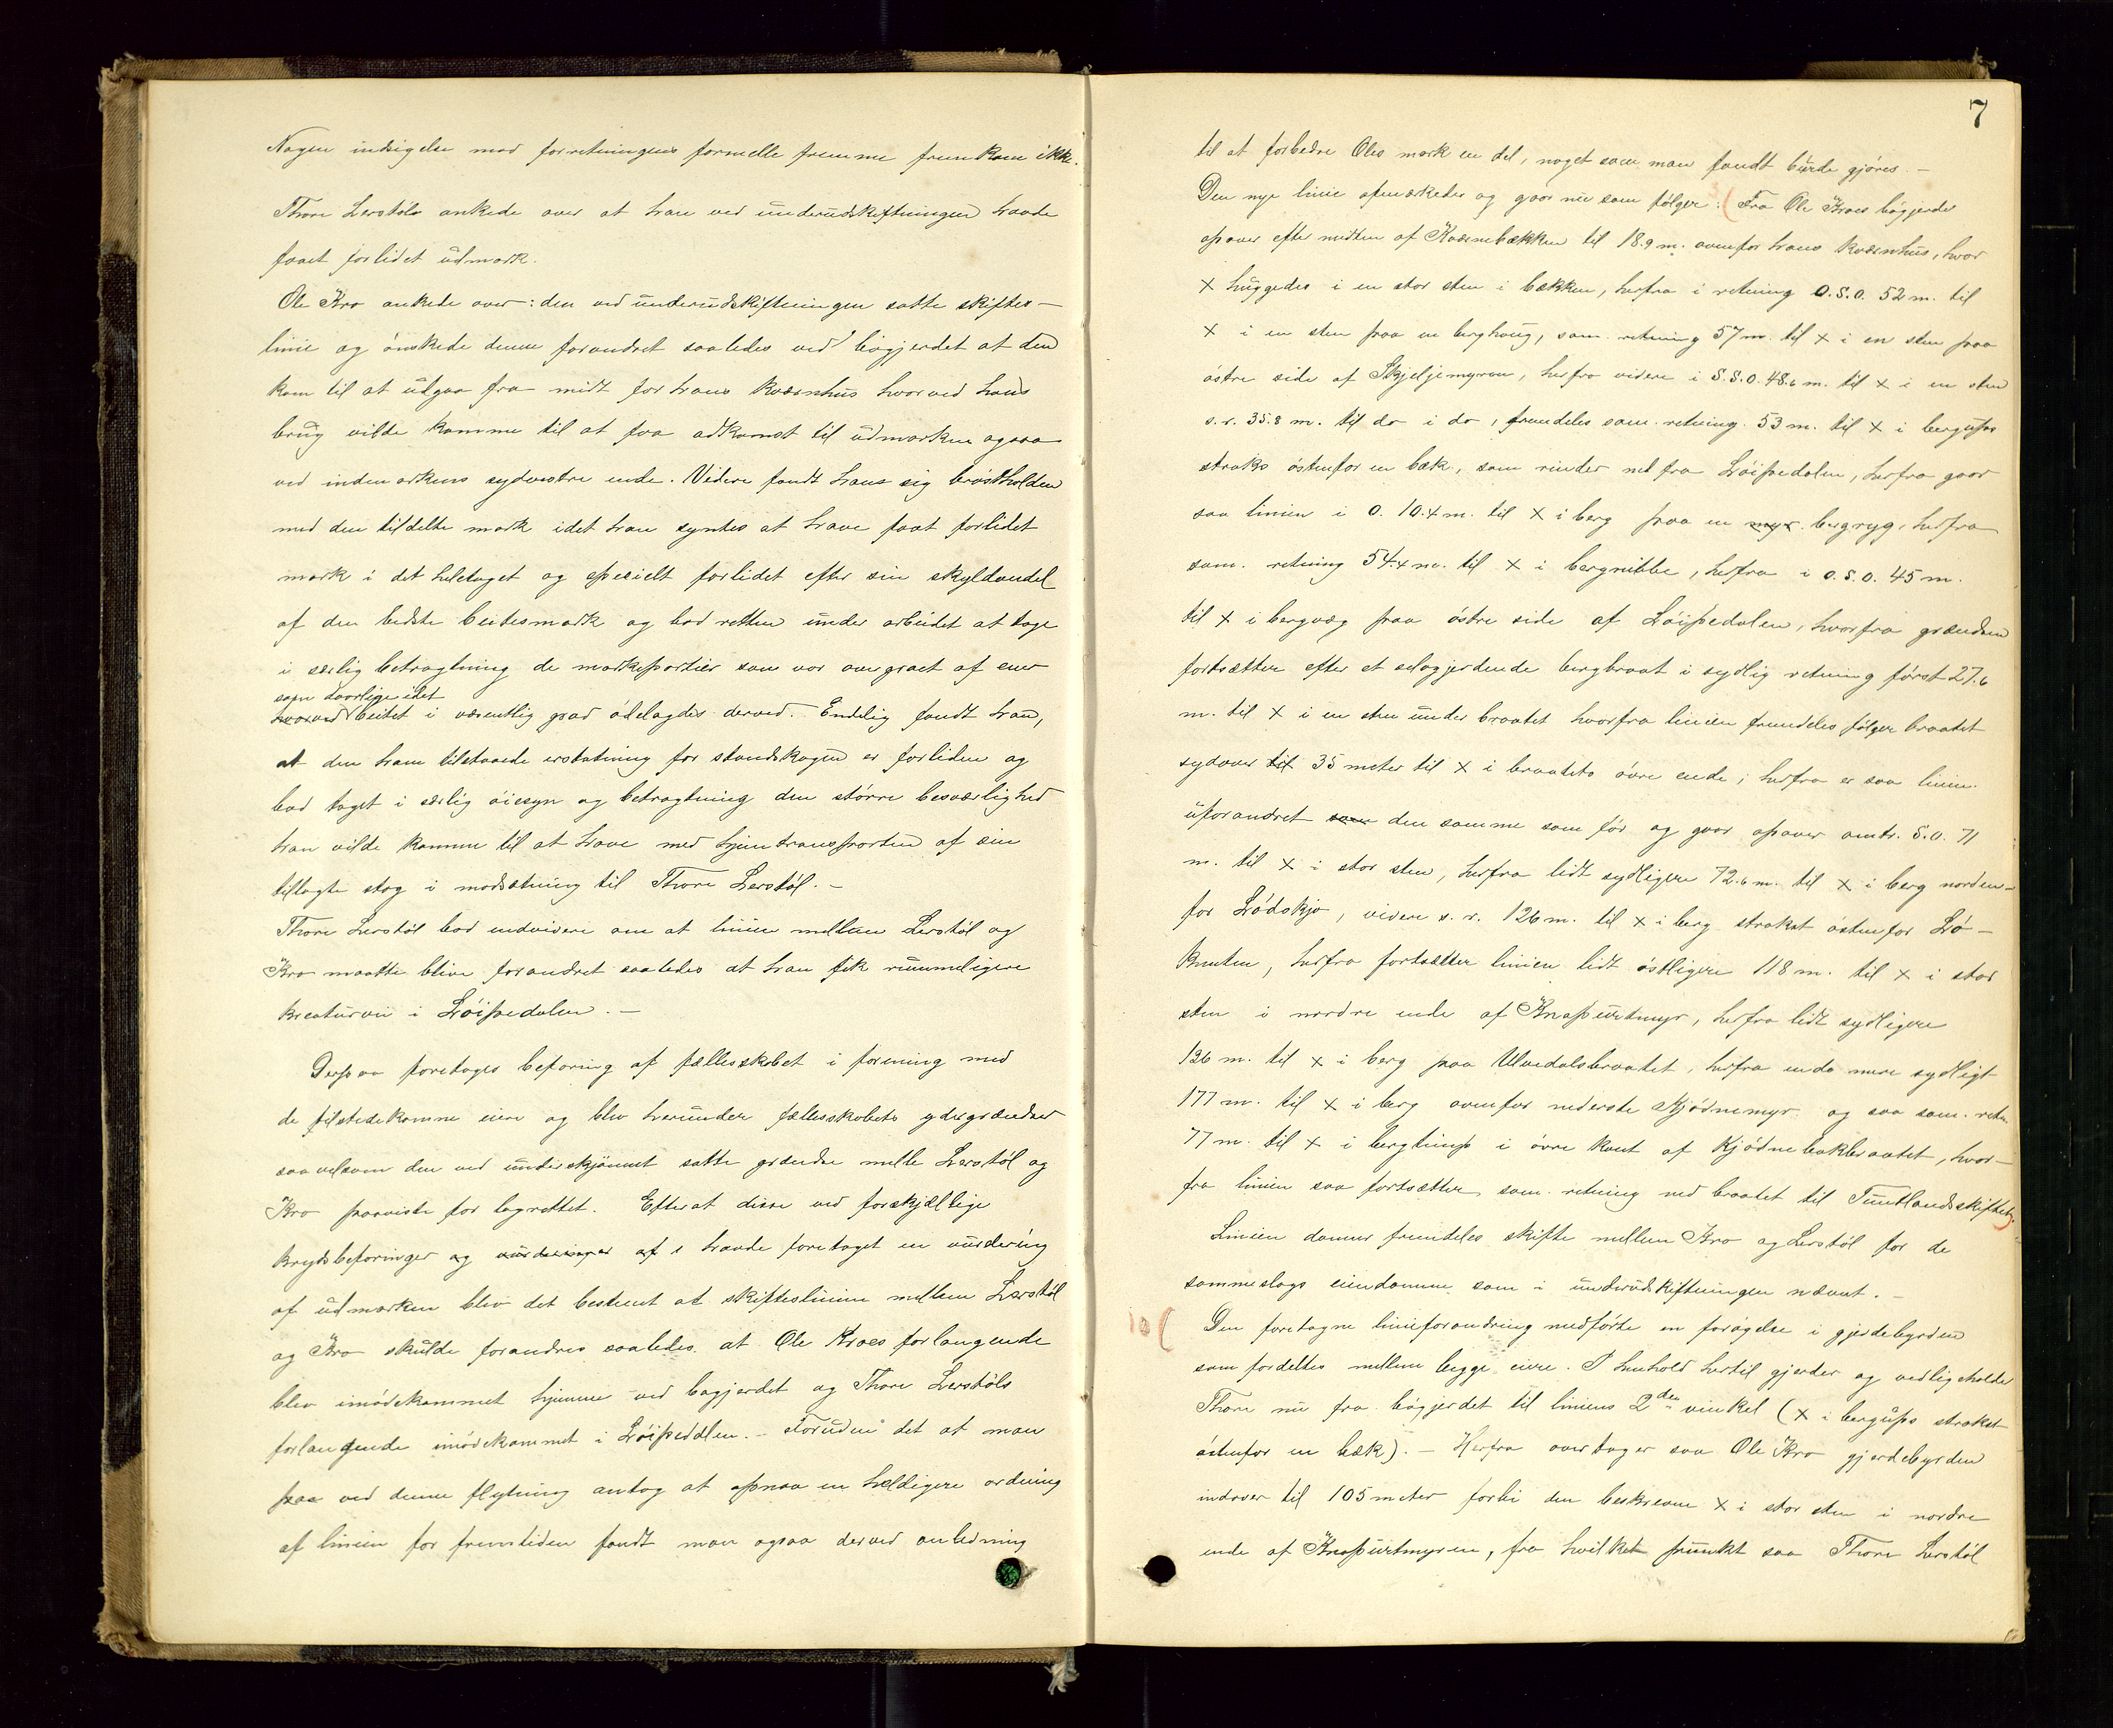 Nogen indsigelse mod forretningens formelle fremme fremkom ikke.
Thore Lerstøls ankede over at han ved underudskiftningen havde
faaet forlidet udmark.
Ole Kro ankede over: den ved underudskiftningen satte skiftes-
linie og ønskede denne forandret saaledes ved bøgjerdet at den
kom til at udgaa fra midt for hans kværnhus hvorved hans
brug vilde komme til at faa adkomst til udmarken ogsaa
ved indmarkens sydvestre ende. Videre fandt hans sig brøstholden
med den tildelte mark idet han syntes at have faat forlidet
mark i det heletaget og specielt forlidet efter sin skyldandel
af den bedste beitesmark og bad retten under arbeidet at tage
i særlig betragtning de markeportier som var overgraet af ener
som daarlige idet
hvorved beitet i væsentlig grad ødelagdes derved. Endelig fandt han,
at den ham tilstaaede erstatning for standskogen er forliden og
bad taget i særlig øiesyn og betragtning den større besværlighed
han vilde komme til at have med hjemtransporten af sin
tillagte skog i modsætning til Thore Lerstøl. -
Thore Lerstøl bad endvidere om at linien mellem Lerstøl og
Kro maatte blive forandret saaledes at han fik rummeligere
kreaturvei i Løipedalen. -
Derpaa foretoges befaring af fællesskabet i forening med
de tilstedekomne eiere og blev herunder fællesskabets ydergrændser
saavelsom den ved underskjønnet satte grændse melle Lerstøl og
Kro paaviste for lagrettet. Efterat disse ved forskjællige
krydsbefaringer og vurderinger af i havde foretaget en vurdering
af udmarken blev det bestemt at skifteslinien mellem Lerstøl
og Kro skulde forandres saaledes at Ole Kroes forlangende
blev imødekommet hjemme ved bøgjerdet og Thore Lerstøls
forlangende imødekommet i Løipedalen. - Foruden det at man
paa ved denne flytning antog at opnaa en heldigere ordning
af linien for fremtiden fandt man ogsaa derved anledning
7
til at forbedre Oles mark en del, noget som man fandt burde gjøres. -
Den nye linie afmærkedes og gaar nu som følger: (Fra Ole Kroes bøgjerde
opover efter midten af Kværnebækken til 18.9 m. ovenfor hans kværnhus, hvor
x huggedes i en stor sten i bækken, herfra i retning O.S.O. 52 m. til
x i en sten paa en berghoug, sam. retning 57 m. til x i en sten paa
østre side af Skjeljemyren, herfra videre i S.S.O. 48.6 m. til x i en sten
s. r. 35.8 m. til do i do, fremdeles sam. retning 53 m. til x i bergups
straks østenfor en bæk, som rinder ned fra Løipedalen, herfra gaar
saa linien i O. 10.4 m. til x i berg paa en myr bergryg, herfra
sam. retning 54.4 m. til x i bergnibbe, herfra i O.S.O. 45 m.
til x i bergvæg paa østre side af Løipedalen, hvorfra grændsen
fortsætter efter et selvgjerdende bergbraat i sydlig retning først 27.6
m. til x i en sten under braatet hvorfra linien fremdeles følger braatet
sydover til 35 meter til x i braatets øvre ende; herfra er saa linien
uforandret som den samme som før og gaar opover omtr. S.O. 71
m. til x i stor sten, herfra lidt sydligere 72.6 m. til x i berg norden-
for Lødskjo, videre s. r. 126 m. til x i berg strakst østenfor Lø-
knuten, herfra fortsætter linien lidt østligere 118 m. til x i stor
sten i nordre ende af Knapurtmyr, herfra lidt sydligere
126 m. til x i berg paa Ulvedalsbraatet, herfra enda mere sydligt
177 m. til x i berg ovenfor nederste Kjødnemyr og saa sam. retn.
77 m. til x i bergtimp i øvre kant af Kjødnebakbraatet, hvor-
fra linien saa fortsætter sam. retning ned braatet til Tuntlandsskiftet).
Linien danner fremdeles skifte mellem Kro og Lerstøl for de
sammeslags eiendomme som i underudskiftningen nævnt. -
Den foretagne linieforandring medførte en forøgelse i gjerdebyrden
som fordeltes mellem begge eiere. I henhold hertil gjerder og vedligeholder
Thore nu fra bøgjerdet til liniens 2den vinkel (x i bergups strakst
østenfor en bæk). - Herfra overtager saa Ole Kro gjerdebyrden
indover til 105 meter forbi den beskrevne x i stor sten i nordre
ende af Knapurtmyren, fra hvilket punkt saa Thore Lerstøl